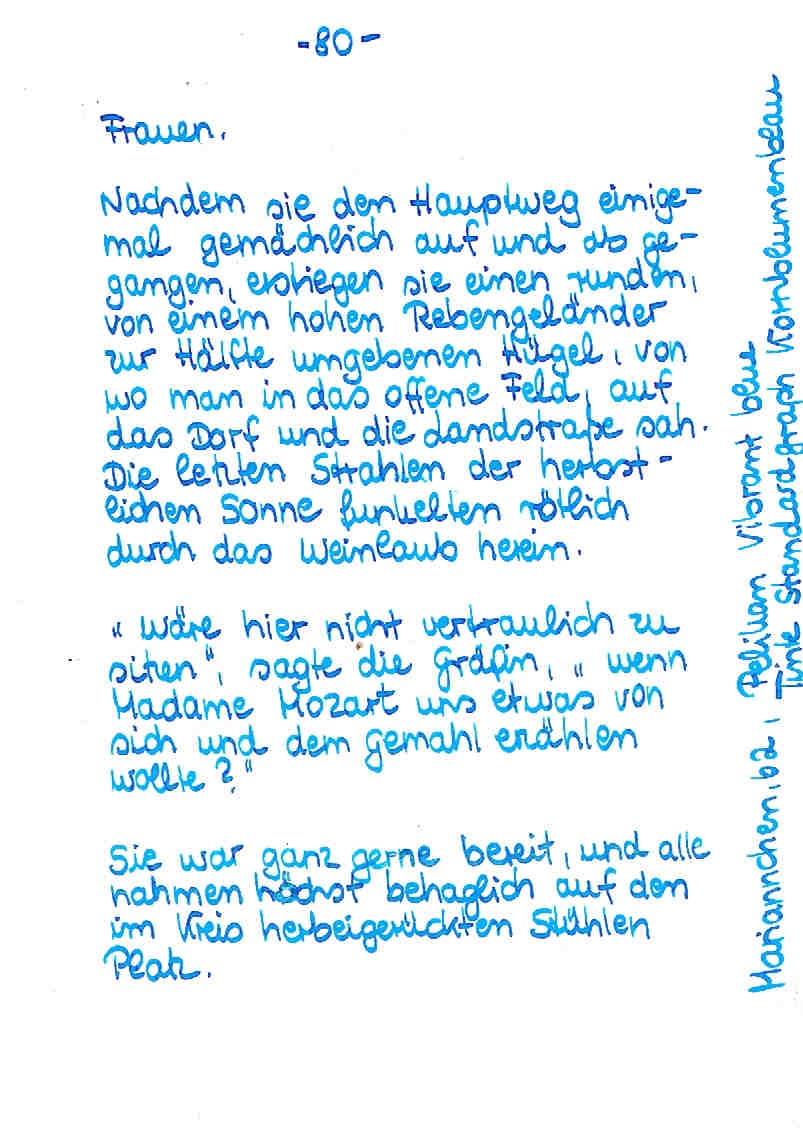 -80-
Frauen.
Nachdem sie den Hauptweg einige-
mal gemächlich auf und ab ge-
gangen, erstiegen sie einen runden,
von einem hohen Rebengeländer
zur Hälfte umgebenen Hügel, von
wo man in das offene Feld, auf
das Dorf und die Landstraße sah.
Die letzten Strahlen der herbst-
lichen Sonne funkelten rötlich
durch das Weinlaub herein.
„ Wäre hier nicht vertraulich zu
sitzen", sagte die Gräfin, „ wenn
Madame Mozart uns etwas von
sich und dem Gemahl erzählen
wollte?"
Sie war ganz gerne bereit, und alle
nahmen höchst behaglich auf den
im Kreis herbeigerückten Stühlen
Platz.
Mariannchen, b2, Pelikan Vibrant blue
Tinte Standardgraph Kornblumenblau